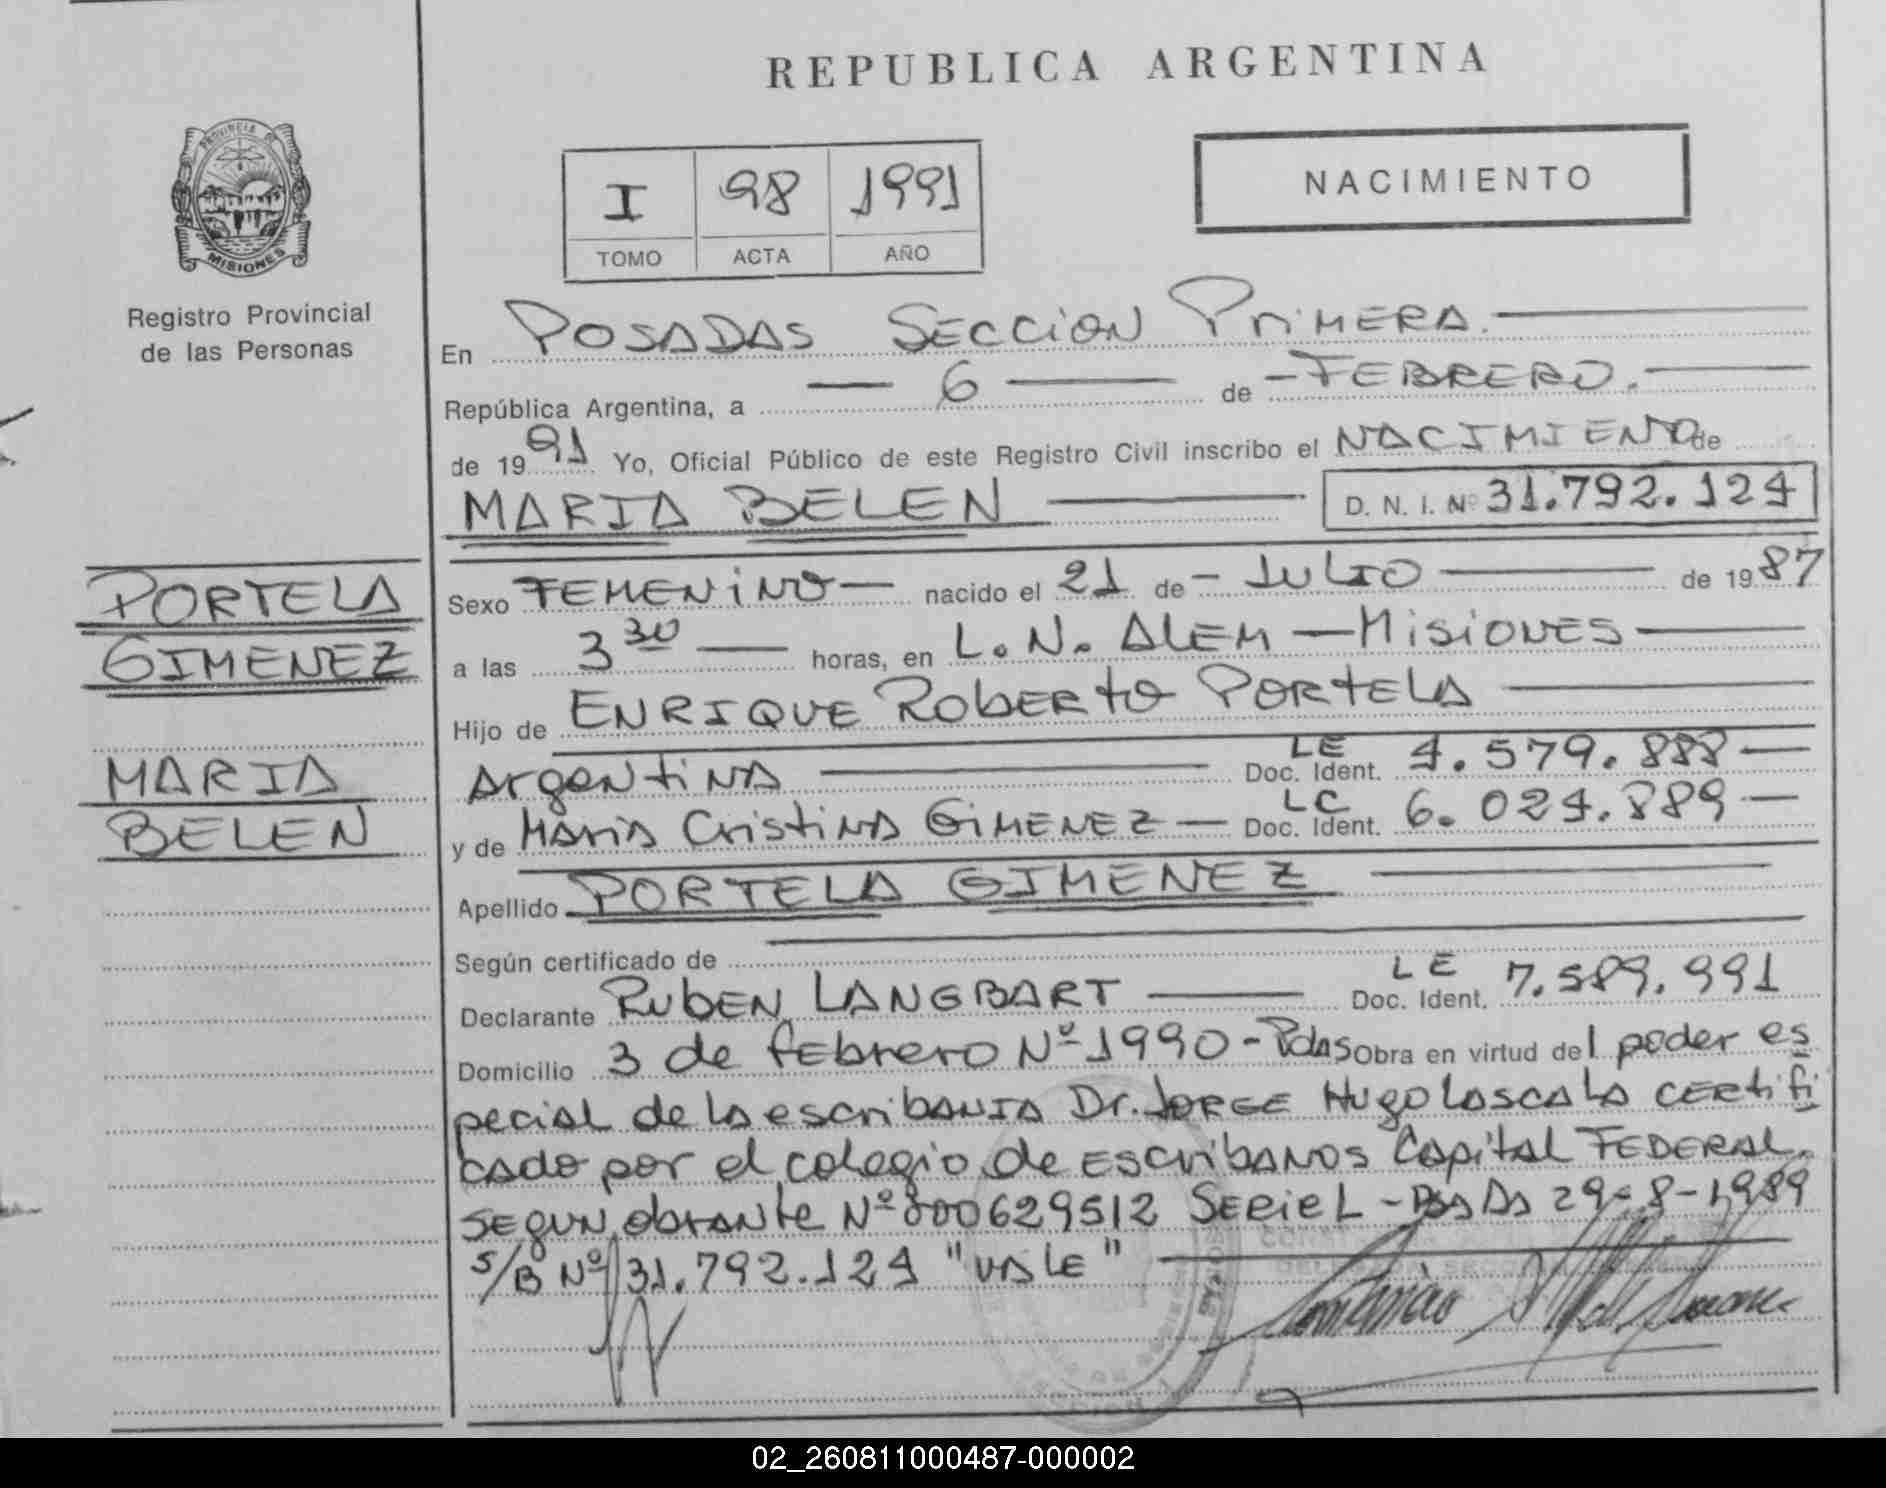 REPUBLICA ARGENTINA
PROVINCIA DE
MISIONES
Registro Provincial
de las Personas
I 98 1991
TOMO ACTA AÑO
NACIMIENTO
En POSADAS SECCION PRIMERA.
República Argentina, a 6 de FEBRERO.
de 1991 Yo, Oficial Público de este Registro Civil inscribo el NACIMIENTO de
MARIA BELEN D. N. I. Nº 31.792.124
PORTELA
GIMENEZ
MARIA
BELEN
Sexo FEMENINO nacido el 21 de JULIO de 1987
a las 3 30 horas, en L. N. ALEM - MISIONES
Hijo de ENRIQUE ROBERTO PORTELA
Argentina LE Doc. Ident. 4.579.888
y de Maria Cristina GIMENEZ LC Doc. Ident. 6.024.889
Apellido PORTELA GIMENEZ
Según certificado de
Declarante RUBEN LANGBART LE Doc. Ident. 7.589.991
Domicilio 3 de febrero Nº 1990 - Pdas Obra en virtud del poder es
pecial de la escribania Dr. JORGE Hugo Lascala certifi
cado por el colegio de Escribanos Capital FEDERAL.
SEGUN obrante Nº 800629512 SERIE L - 29-8-1989
S/B Nº 31.792.124 "VALE"
02_260811000487-000002